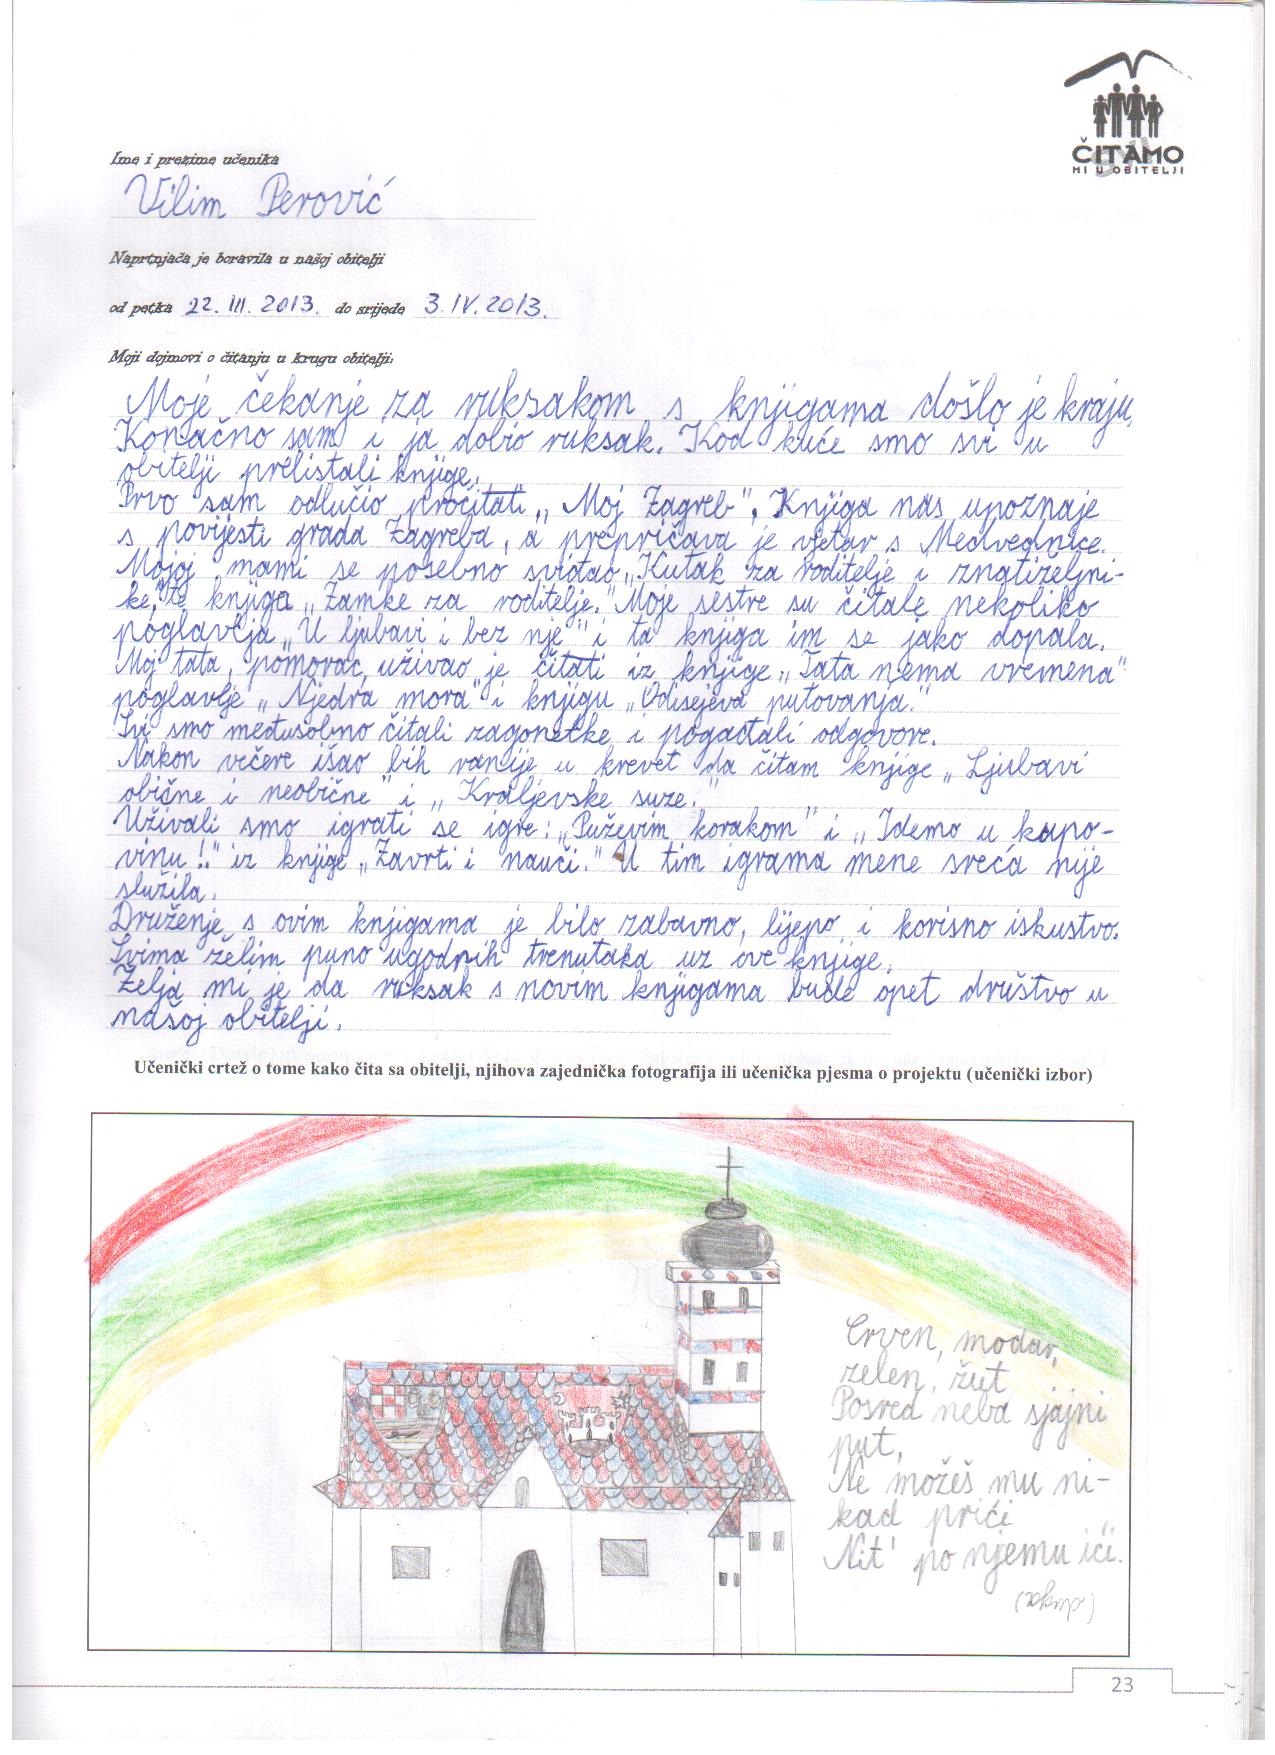 ČITAMO
MI U OBITELJI
Ime i prezime učenika
Vilim Perović
Naprtnjača je boravila u našoj obitelji
od petka 22. III. 2013. do srijede 3. IV. 2013.
Moji dojmovi o čitanju u krugu obitelji:
Moje čekanje za ruksakom s knjigama došlo je kraju.
Konačno sam i ja dobio ruksak. Kod kuće smo svi u
obitelji prelistali knjige.
Prvo sam odlučio pročitati „Moj Zagreb". Knjiga nas upoznaje
s povijesti grada Zagreba, a prepričava je vjetar s Medvednice.
Mojoj mami se posebno sviđao „Kutak za roditelje i znatiželjni-
ke," te knjiga „Zamke za roditelje." Moje sestre su čitale nekoliko
poglavlja „U ljubavi i bez nje" i ta knjiga im se jako dopala.
Moj tata, pomorac, uživao je čitati iz knjige „Tata nema vremena"
poglavlje „Njedra mora" i knjigu „Odisejeva putovanja."
Svi smo međusobno čitali zagonetke i pogađali odgovore.
Nakon večere išao bih ranije u krevet da čitam knjige „Ljubavi
obične i neobične" i „Kraljevske suze."
Uživali smo igrati se igre: „Puževim korakom" i „Idemo u kupo-
vinu!" iz knjige „Zavrti i nauči." U tim igrama mene sreća nije
služila.
Druženje s ovim knjigama je bilo zabavno, lijepo i korisno iskustvo.
Svima želim puno ugodnih trenutaka uz ove knjige.
Želja mi je da ruksak s novim knjigama bude opet društvo u
našoj obitelji.
Učenički crtež o tome kako čita sa obitelji, njihova zajednička fotografija ili učenička pjesma o projektu (učenički izbor)
Crven, modar,
zelen, žut
Posred neba sjajni
put,
Ne možeš mu ni-
kad prići
Nit' po njemu ići.
(duga)
23